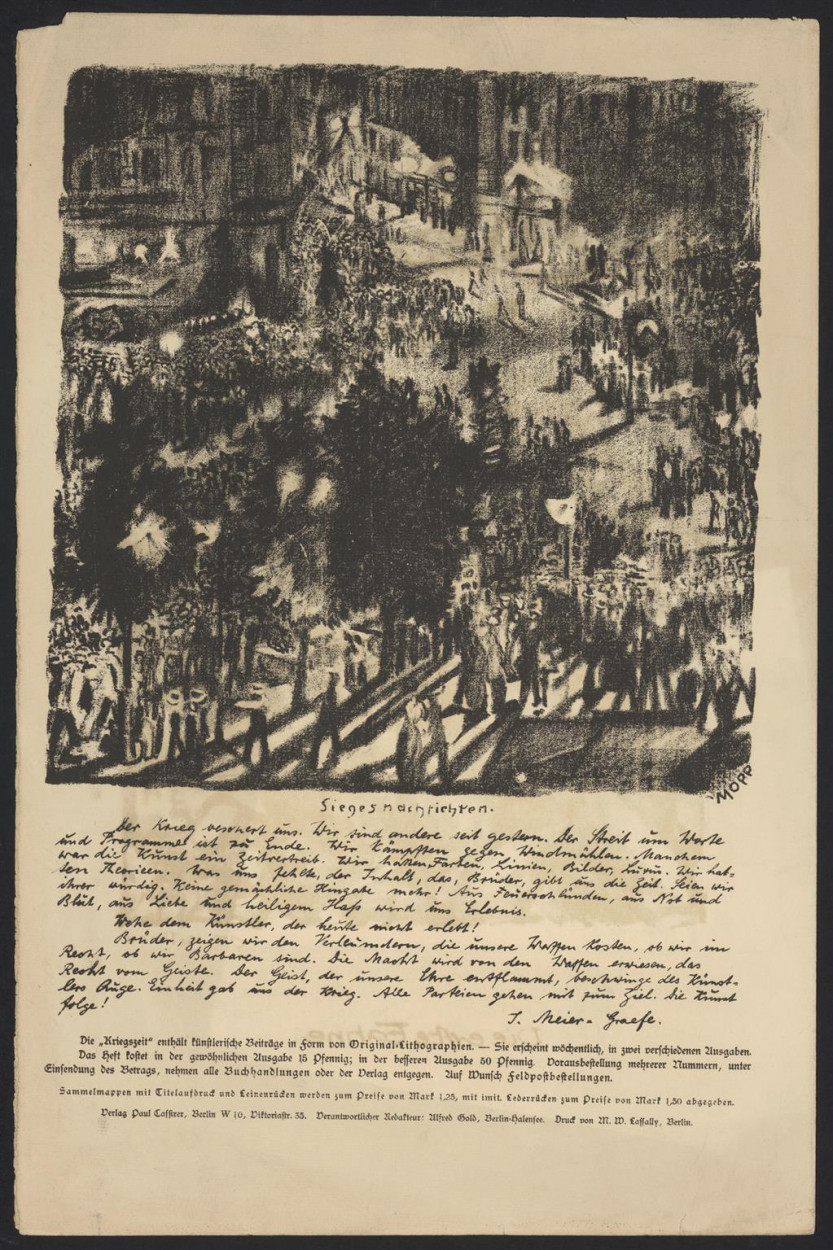 MOPP
Siegesnachrichten.
Der Krieg beschert uns. Wir sind andere seit gestern. Der Streit um Worte
und Programme ist zu Ende. Wir kämpften gegen Windmühlen. Manchem
war die Kunst ein Zeitvertreib. Wir hatten Farben, Linien, Bilder, Luxus. Wir hat-
ten Theorieen. Was uns fehlte, der Inhalt, das, Brüder, gibt uns die Zeit. Seien wir
ihrer würdig. Keine gemächliche Hingabe mehr! Aus Feuerschlünden, aus Not und
Blut, aus Liebe und heiligem Haß wird uns Erlebnis.
Wehe dem Künstler, der heute nicht erlebt!
Brüder, zeigen wir den Verleumdern, die unsere Waffen kosten, ob wir im
Recht, ob wir Barbaren sind. Die Macht wird von den Waffen erwiesen, das
Recht vom Geiste. Der Geist, der unsere Ehre entflammt, beschwinge des Künst-
lers Auge. Einheit gab uns der Krieg. Alle Parteien gehen mit zum Ziel. Die Kunst
folge!
J. Meier-Graefe.
Die „Kriegszeit“ enthält künstlerische Beiträge in Form von Original-Lithographien. — Sie erscheint wöchentlich, in zwei verschiedenen Ausgaben.
Das Heft kostet in der gewöhnlichen Ausgabe 15 Pfennig; in der besseren Ausgabe 50 Pfennig. Vorausbestellung mehrerer Nummern, unter
Einsendung des Betrags, nehmen alle Buchhandlungen oder der Verlag entgegen. Auf Wunsch Feldpostbestellungen.
Sammelmappen mit Titelaufdruck und Leinenrücken werden zum Preise von Mark 1,25, mit imit. Lederrücken zum Preise von Mark 1,50 abgegeben.
Verlag Paul Cassirer, Berlin W 10, Viktoriastr. 35. Verantwortlicher Redakteur: Alfred Gold, Berlin-Halensee. Druck von M. W. Lassally, Berlin.